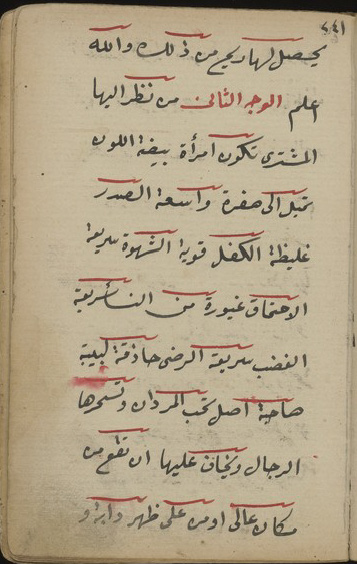 ٤٤١
يحصل لها ريح من ذلك والله
اعلم الوجه الثانى من نظر اليها
المشترى تكون امرأة بيضة اللون
تميل الى صفرة واسعة الصدر
غليظة الكفل قوية الشهوة سريعة
الاحتماق غيورة من النسا سريعة
الغضب سريعة الرضى حاذقة لبيبة
صاحبة اصل تحب المردان وتسحرها
الرجال ويخاف عليها ان تقع من
مكان عالى او من على ظهر دابة و